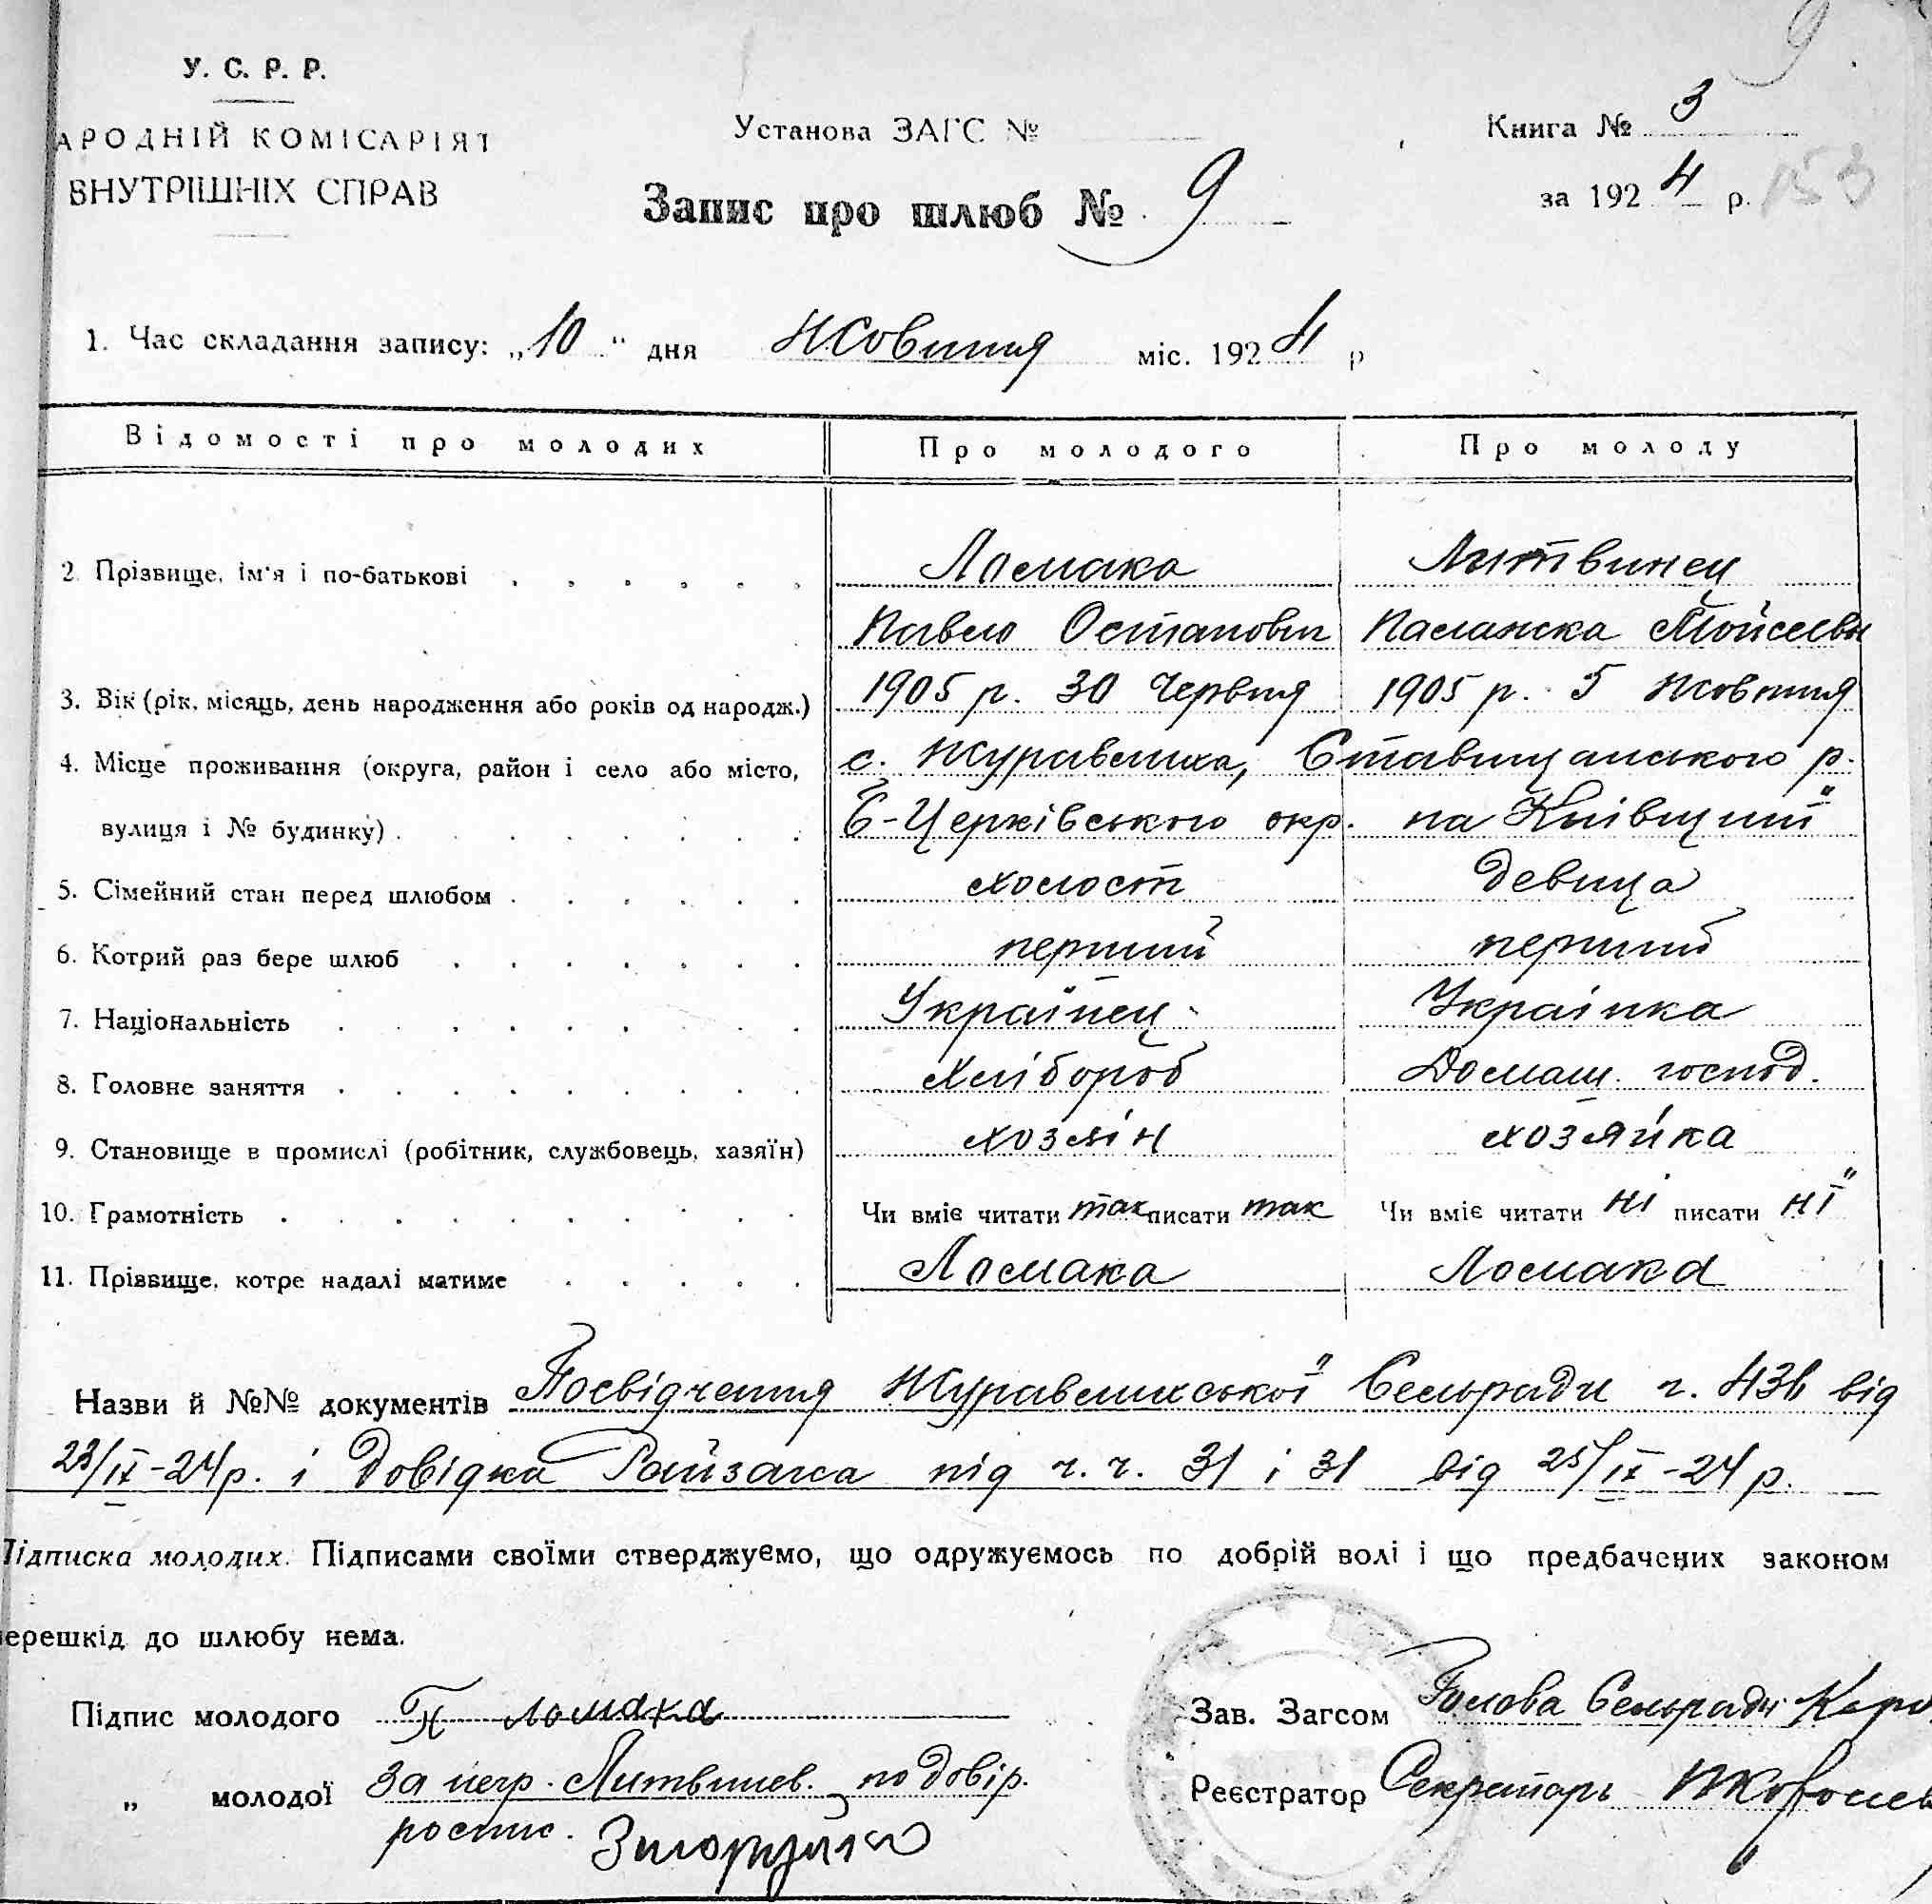 9
У. С. Р. Р.
АРОДНІЙ КОМІСАРІЯТ
ВНУТРІШНІХ СПРАВ
Установа ЗАГС №
Книга № 3
за 1924 р. 153
Запис про шлюб № 9
1. Час складання запису: „10" дня Жовтня міс. 1924 р
Відомості про молодих Про молодого Про молоду
2. Прізвище, ім'я і по-батькові Ломака Литвинец
Павло Остапович Паланжка Мойсеевн
3. Вік (рік, місяць, день народження або років од народж.) 1905 р. 30 Червня 1905 р. 5 Жовтня
4. Місце проживання (округа, район і село або місто, с. Журавлиха, Ставищанського р.
вулиця і № будинку) Б-Церківського окр. на Київщині
5. Сімейний стан перед шлюбом холост девица
6. Котрий раз бере шлюб перший перший
7. Національність Українец Українка
8. Головне заняття Хлібороб Домаш. господ.
9. Становище в промислі (робітник, службовець, хазяїн) хозяін хозяйка
10. Грамотність Чи вміє читати так писати так Чи вміє читати ні писати ні
11. Прізвище, котре надалі матиме Ломака Ломака
Назви й №№ документів Посвідчення Журавлихської Сельради ч. 431 від
23/IX-24 р. і довідка Райзагса під ч. ч. 31 і 31 від 25/IX-24 р.
Підписка молодих. Підписами своїми стверджуємо, що одружуємось по добрій волі і що предбачених законом
ерешкід до шлюбу нема.
Підпис молодого П Ломака
Зав. Загсом Голова Сельради
„ молодої За негр. Литвинев. по довір.
Реєстратор Секретарь
роспис.